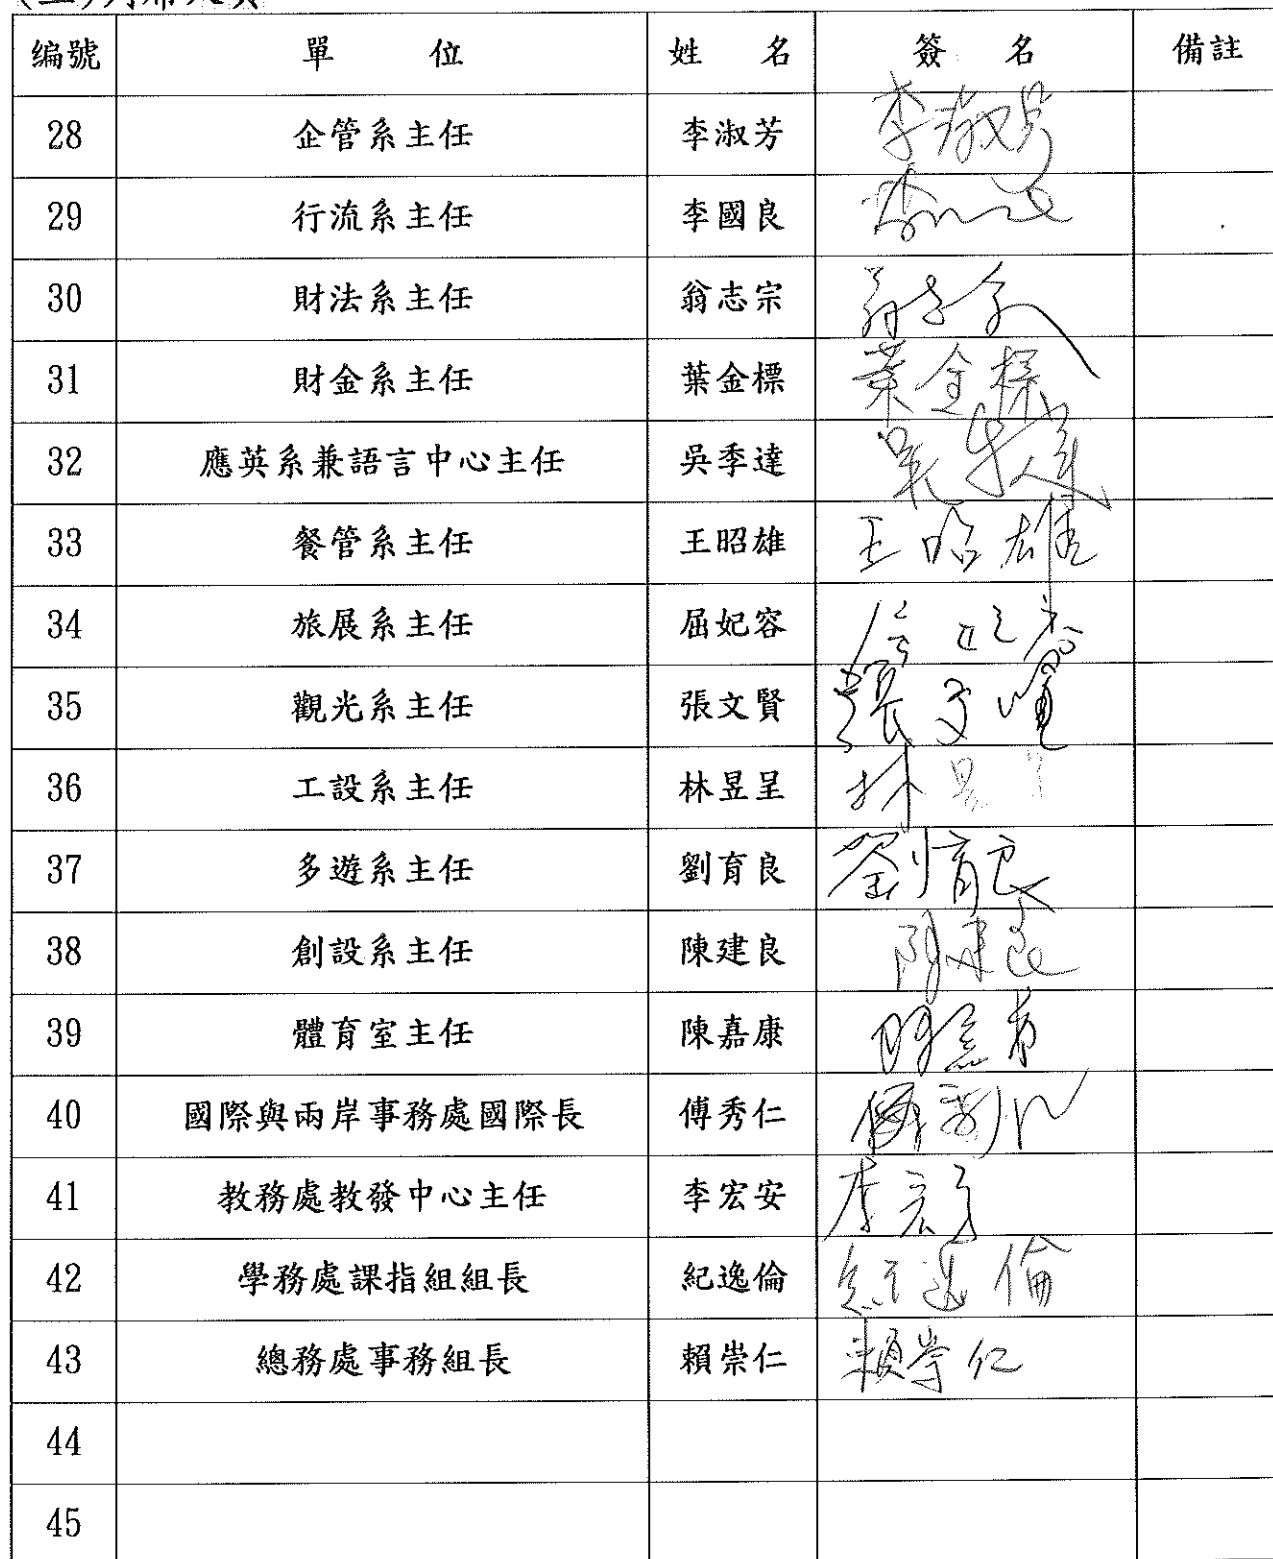 編號 單位 姓名 簽名 備註
28 企管系主任 李淑芳 李淑芳
29 行流系主任 李國良
30 財法系主任 翁志宗 翁志宗
31 財金系主任 葉金標 葉金標
32 應英系兼語言中心主任 吳季達 吳季達
33 餐管系主任 王昭雄 王昭雄
34 旅展系主任 屈妃容 屈妃容
35 觀光系主任 張文賢 張文賢
36 工設系主任 林昱呈 林昱
37 多遊系主任 劉育良 劉育良
38 創設系主任 陳建良 陳建良
39 體育室主任 陳嘉康
40 國際與兩岸事務處國際長 傅秀仁
41 教務處教發中心主任 李宏安 李宏安
42 學務處課指組組長 紀逸倫 紀逸倫
43 總務處事務組長 賴崇仁 賴崇仁
44
45